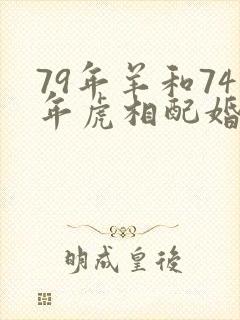 79年羊和74
年虎相配婚
明成皇後